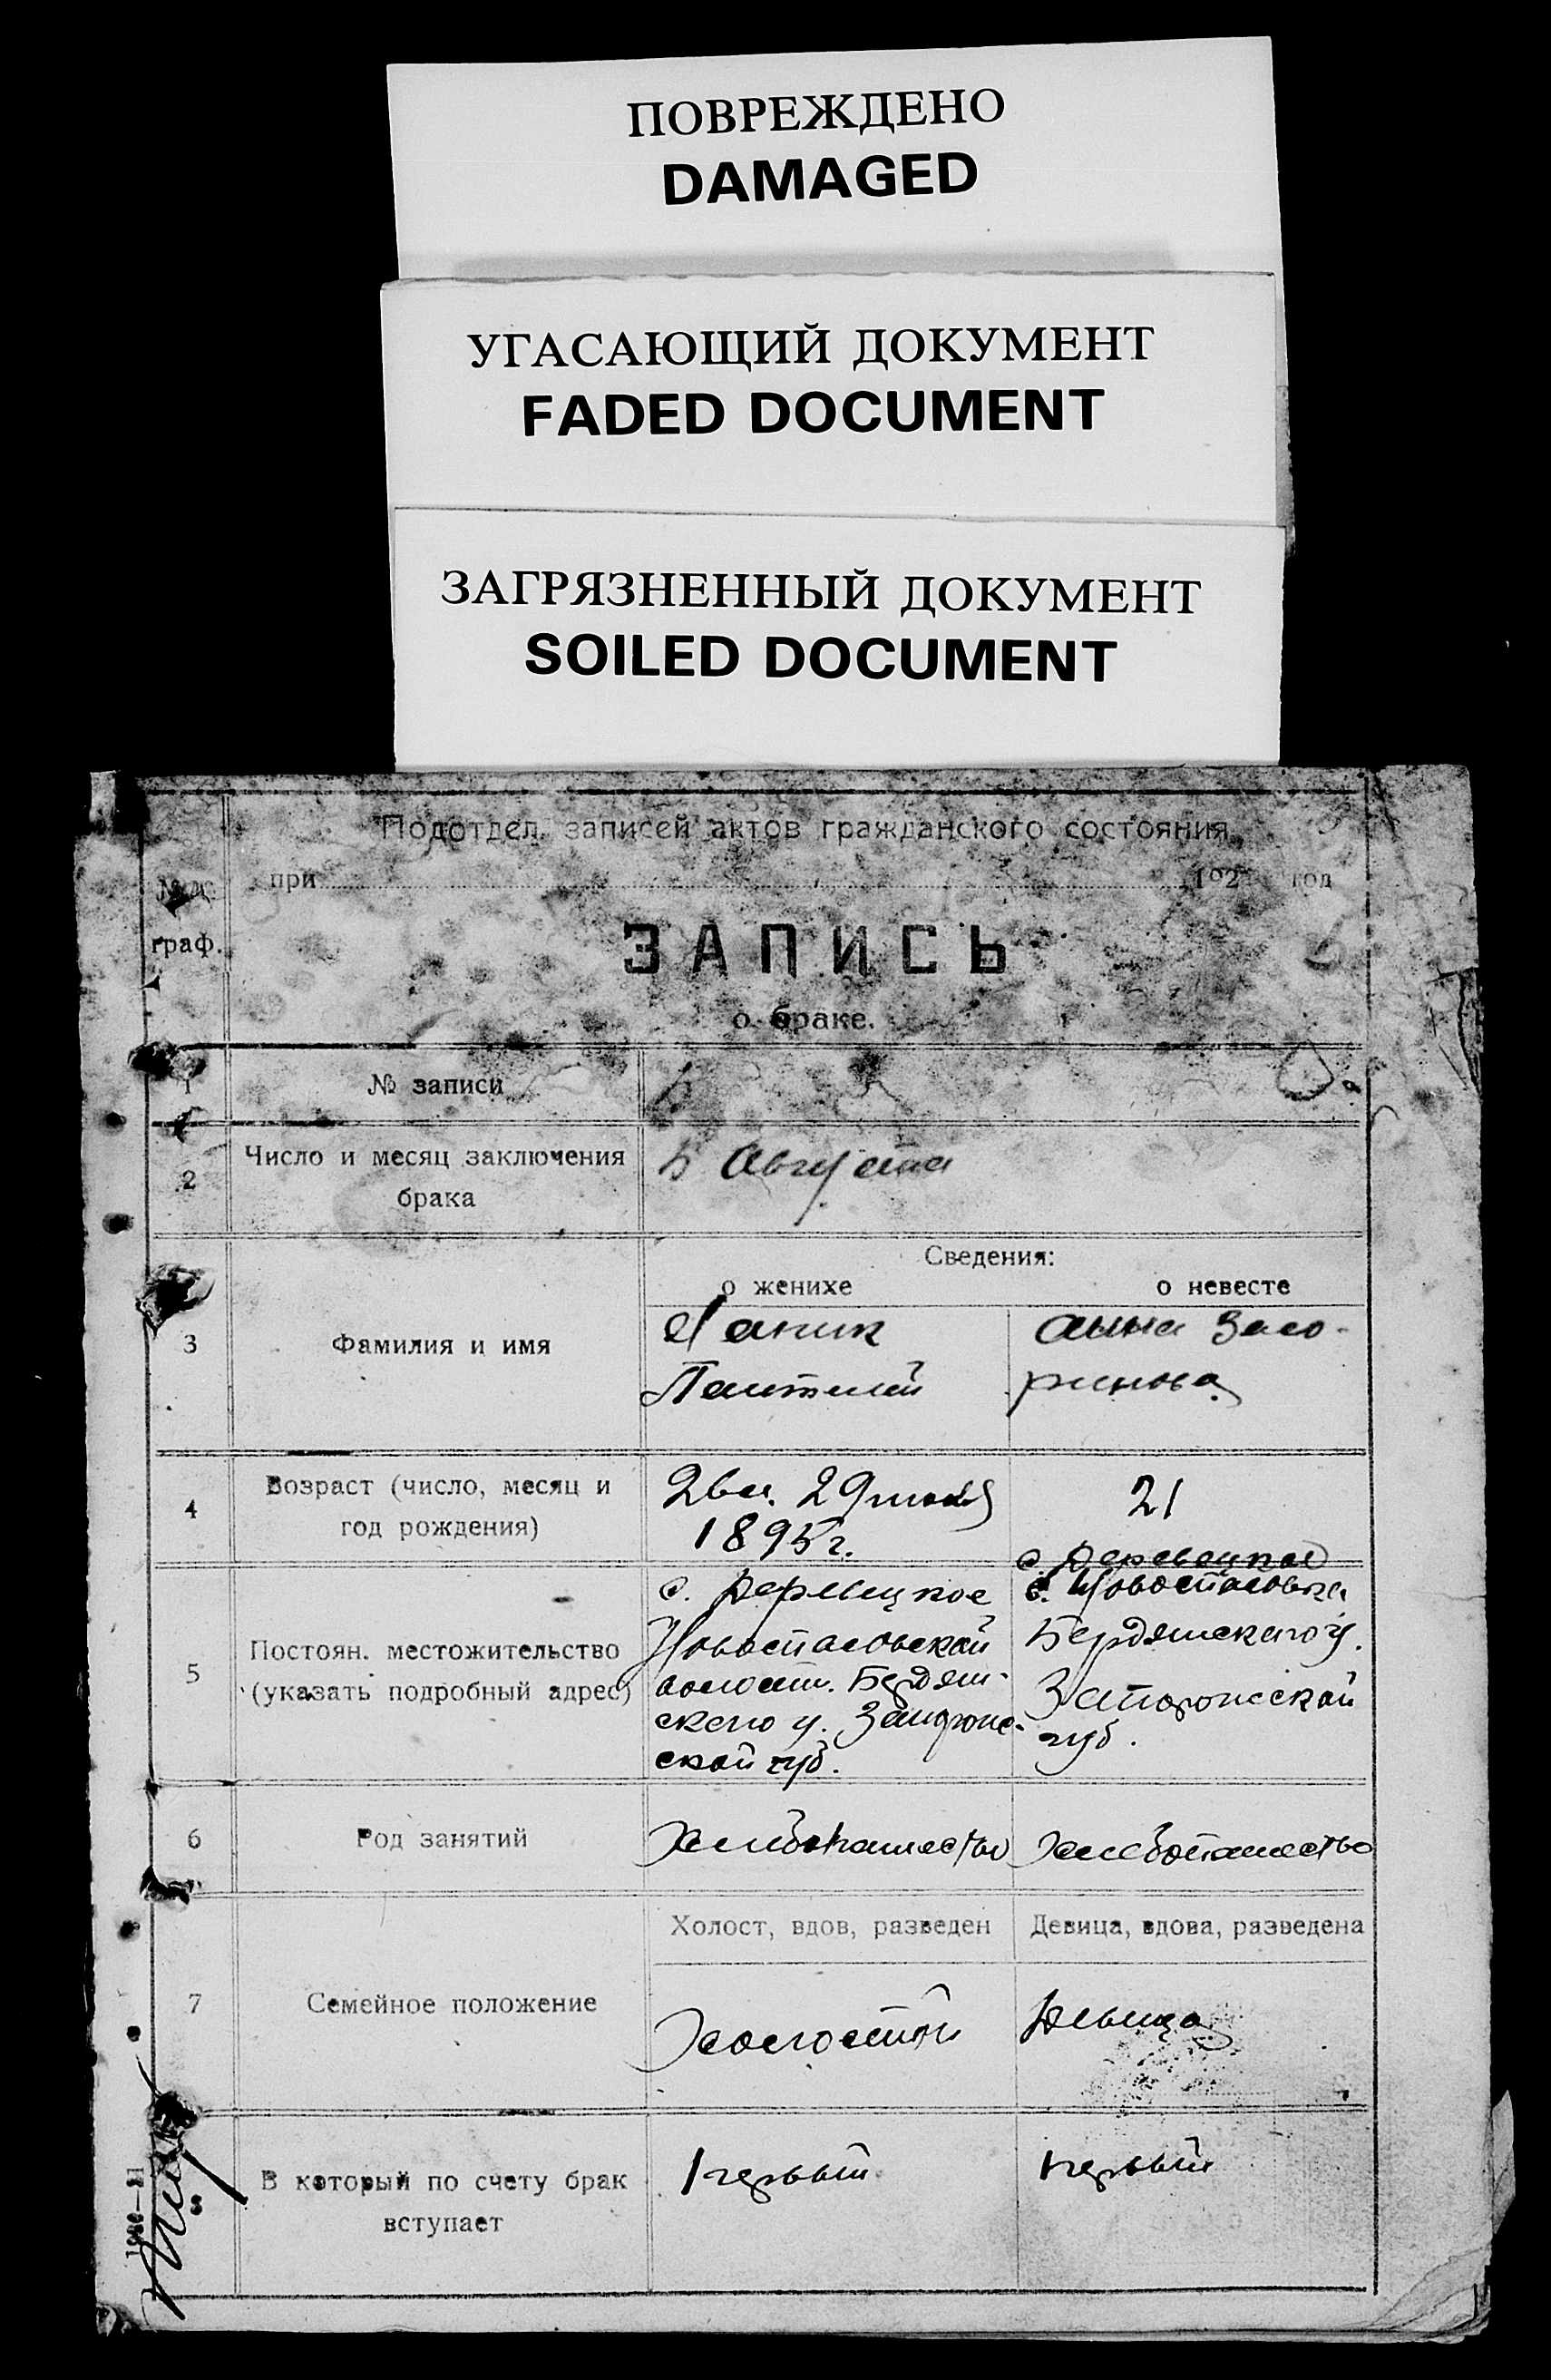 ПОВРЕЖДЕНО
DAMAGED
УГАСАЮЩИЙ ДОКУМЕНТ
FADED DOCUMENT
ЗАГРЯЗНЕННЫЙ ДОКУМЕНТ
SOILED DOCUMENT
Подотдел записей актов гражданского состояния
при 192 год
граф.
ЗАПИСЬ
о браке.
1 № записи
2 Число и месяц заключения
брака
5 Августа
Сведения:
о женихе о невесте
3 Фамилия и имя
Анна
Пантелей
4 Возраст (число, месяц и
год рождения)
29 21
1895 г.
5 Постоян. местожительство
(указать подробный адрес)
с.
Новоспасовской
волости. Бердян-
ского у. Запорож-
ской губ.
с.
Новоспасовка
Бердянского у.
Запорожской
губ.
6 Род занятий
Хлебопашество Хлебопашество
Холост, вдов, разведен Девица, вдова, разведена
7 Семейное положение
Холостой Девица
В который по счету брак
вступает
первый первый